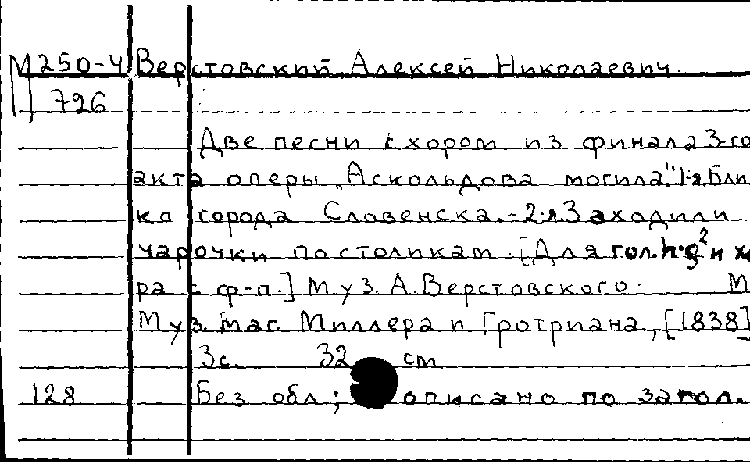 М 250-4 Верстовский, Алексей Николаевич.
726
Две песни с хором из финала 3-го
акта оперы "Аскольдова могила". 1-я. Бли
ка города Славенска. - 2-я. Заходили
чарочки по столикам. [Для гол. h-g² и хо
ра с ф-п.] Муз. А. Верстовского. М
Муз. маг. Миллера и Гротриана, [1838]
3с. 32 см
128 Без обл; описано по загол.